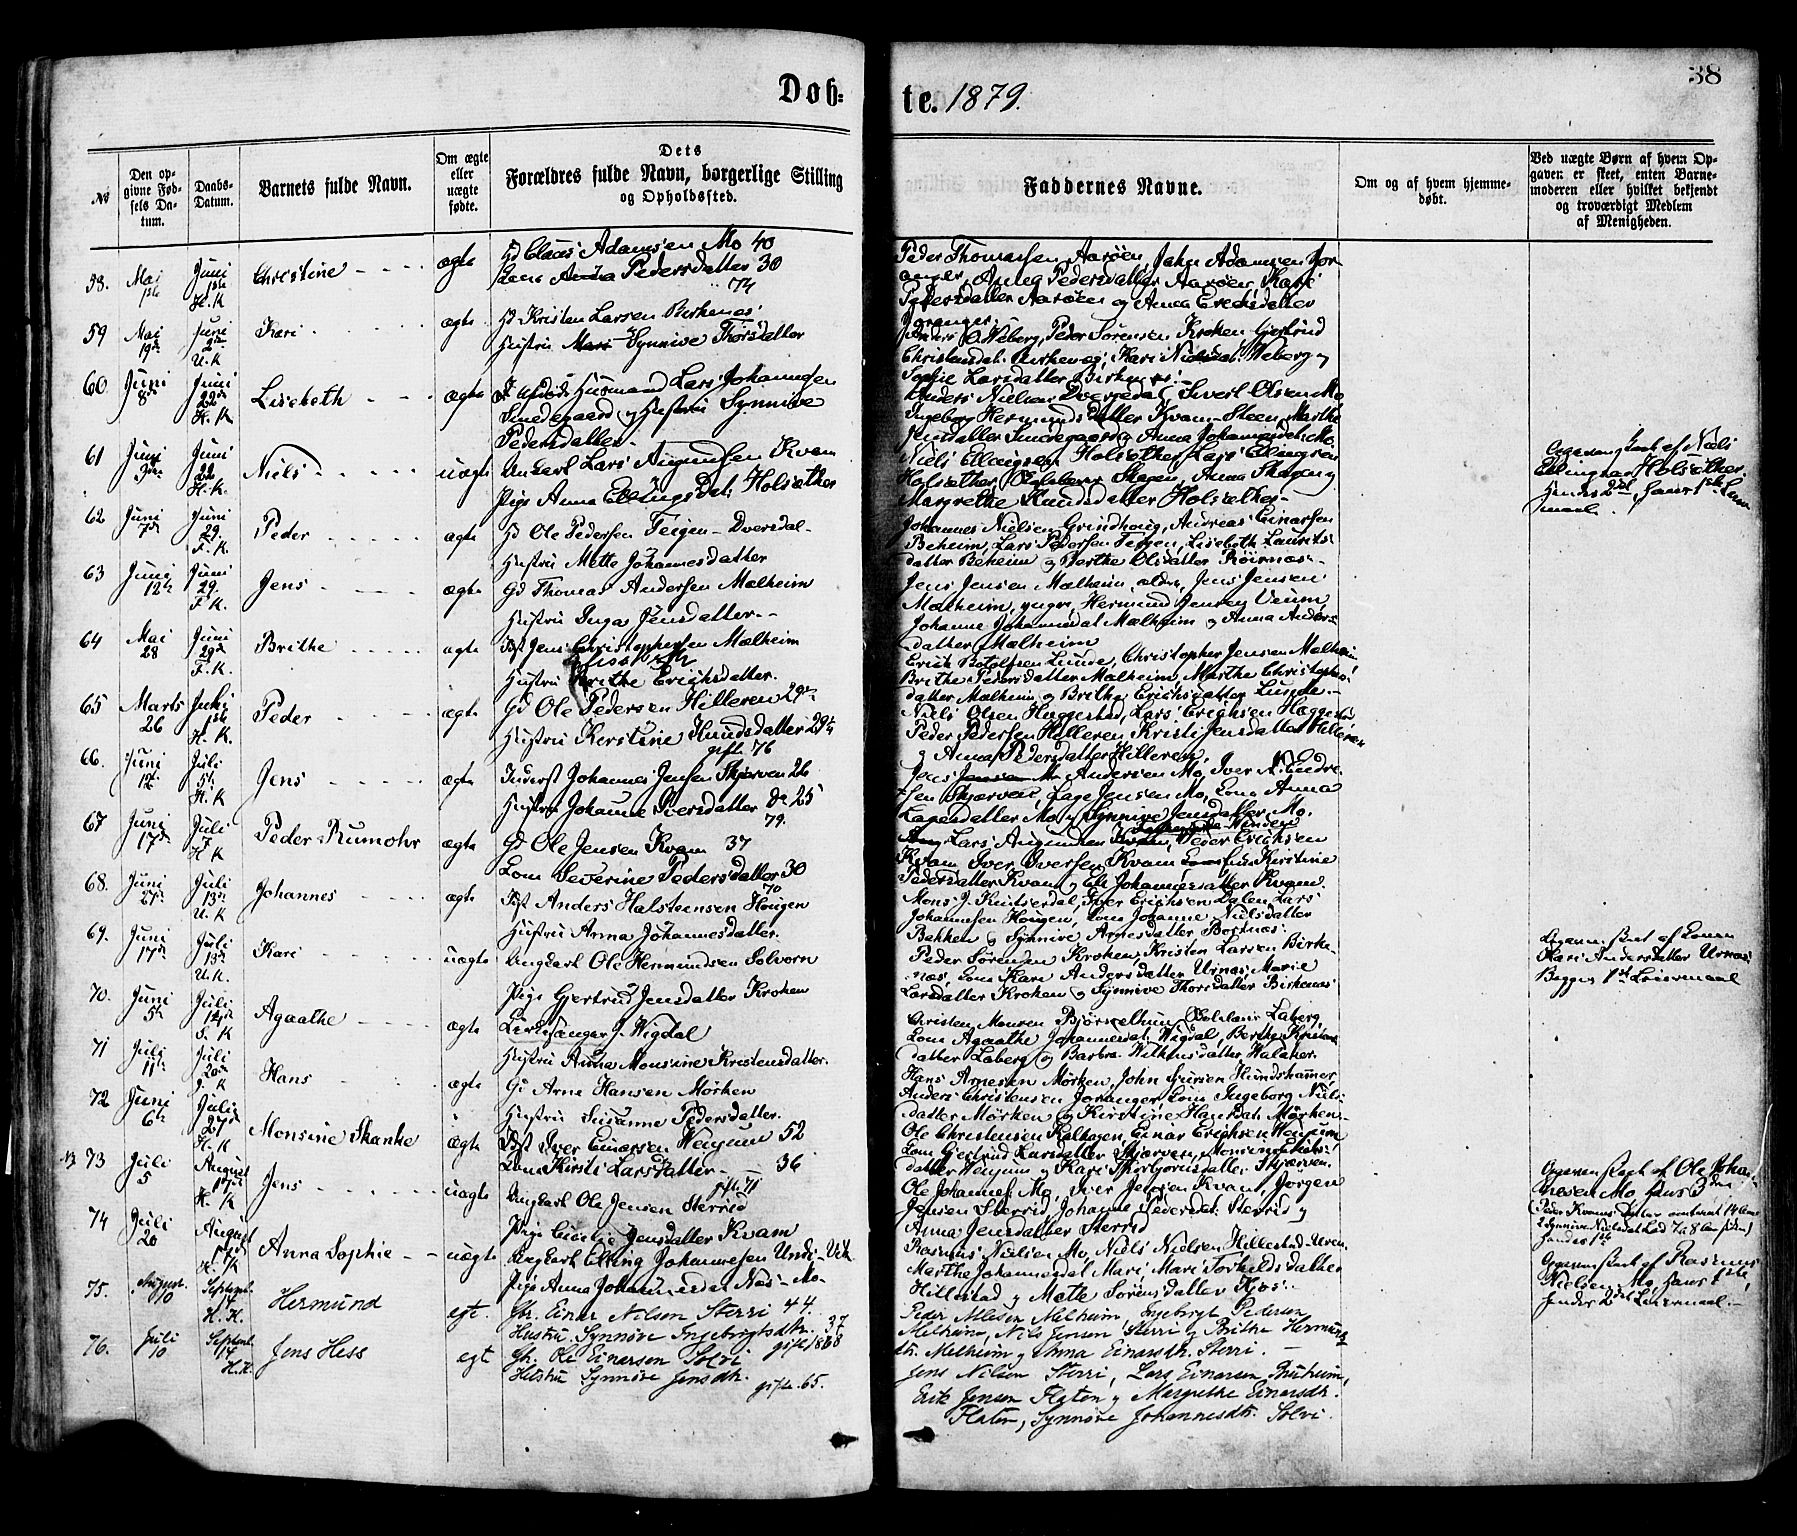 Døb=
te. 1879.
38
№
Den op-
givne Fød-
sels Da-
tum.
Daabs-
Datum.
Barnets fulde Navn.
Om ægte
eller
uægte
fødte.
Dets
Forældres fulde Navn, borgerlige Stilling
og Opholdssted.
Faddernes Navne.
Om og af hvem hjemme-
døbt.
Ved uægte Børn af hvem Op-
gaven er skeet, enten Barne-
moderen eller hvilket bekjendt
og troværdigt Medlem
af Menigheden.
58. Mai 1ste Juni 1ste H. K Christine ægte Gd Claus Adamsen Mo 40
Pedersdatter 30
74
Peder Thomassen Aarøen, John Adamsen Jor-
anger, Pedersdatter Aarøen, Kari
Pedersdatter Aarøen og Anna Erichsdatter
Joranger.
59 Mai 19de Juni 2den U. K Kari ægte Gd Kristen Larsen Birkenæs
Hustru Synnive Thorsdatter
Anders O. Weberg, Peder Sørensen Kroken, Gjertrud
Christensdat. Birkenæs, Kari Weberg og
Sophie Larsdatter Birkenæs.
60 Juni 8de Juni 22de H. K Lisebeth ægte Husmand Lars Johannesen
Smedegaard og Hustru Synnive
Pedersdatter
Anders Nielsen Dversdal, Sivert Olsen Mo,
Ingeborg Hermundsdatter Kvam-Steen, Marthe
Jensdatter Smedegaard og Anna Johannesdat. Mo.
61 Juni Juni 22 H. K. Niels uægte Ungkarl Lars Augundsen Kvam
Pige Anna Ellingsdat. Holsæther
Niels Ellingsen Holsæther, Lars Ellingsen
Holsæther, Skagen, Anna Skagen og
Margrethe Knudsdatter Holsæther
af Niels
Ellingsen Holsæther.
Hendes 2det, hans 1ste Leier-
maal.
62 Juni 7de Juni 29. F. K. Peder ægte Gd Ole Pedersen Teigen - Dversdal
Hustru Mette Johannesdatter
Johannes Nielsen Grindhoug, Andreas Einarsen
Beheim, Lars Pedersen Teigen, Lisebeth Laurits-
datter Beheim og Berthe Olsdatter Røirnæs
63 Juni 12te Juni 29. F. K. Jens ægte Gd Thomas Andersen Mælheim
Hustru Inga Jensdatter
Jens Jensen Mælheim, ældre, Jens Jensen
Mælheim, yngre, Hermund Jensen Veum,
Johanne Johannesdat Mælheim og Anna Anders-
datter Mælheim
64 Mai 28 Juni 29de F. K. Brithe ægte Jens Christophersen Mælheim
Hustru Brithe Erichsdatter.
Erich Botolfsen Lunde, Christopher Jensen Mælheim,
Brithe Pedersdatter Mælheim, Marthe Christophers-
datter Mælheim og Brithe Erichsdatter Lunde.
65 Marts 26 Juli 1ste H. K. Peder ægte Gd Ole Pedersen Hilleren 29
Hustru Kerstine Knudsdatter 29
gift 76
Niels Olsen Hæggestad, Lars Erichsen Hæggestad
Peder Pedersen Hilleren Hilleren
og Anna Pedersdatter Hilleren.
66. Juni 12te Juli 5te H. K Jens ægte Inderst Johannes Jensen Skjerven 26
Hustru Johanne Iversdatter do 25
79.
Jens Andersen Mo, Iver A. Eindre-
sen Skjerven, Lage Jensen Mo, Anna
Lagesdatter Mo og Synnive Jensdatter Mo.
67 Juni 17de Juli 7 H K Peder Rumohr ægte Gd Ole Jensen Kvam 37
Kone Severine Pedersdatter 30
70
Lars Augundsen Peder Erichsen
Kvam, Iver Iversen Kvam, Kirstine
Pedersdatter Kvam og Eli Johannesdatter Kvam.
68. Juni 27de Juli 13de U. K Johannes ægte Anders Halsteensen Hougen
Hustru Anna Johannesdatter.
Mons J. Knitserdal, Iver Erichsen Dalen, Lars
Johannesen Hougen, Kone Johanne Nielsdatter
Bakken og Synnive Arnesdatter Bortnæs.
69. Juni 17de Juli 13de U. K. Kari uægte Ungkarl Ole Hermundsen Solvorn
Pige Gjertrud Jensdatter Kroken
Peder Sørensen Kroken, Kristen Larsen Birke-
næs, Kone Kari Andersdatter Urnæs, Marie
Larsdatter Kroken og Synnive Thorsdatter Birkenæs
af Konen
Kari Andersdatter Urnæs
Begges 1ste Leiermaal
70. Juni 5te Juli 14de S. K Agaathe ægte Kirkesanger J. Wigdal
Hustru Anna Monsine Kristensdatter.
Christen Monsen Laberg,
Kone Agaathe Johannesdat. Wigdal, Berthe
datter Laberg og Barbra Wilhmsdatter Halaker.
71 Juli 11te Juli 20de J. K Hans ægte Gd Arne Hansen Mørken
Hustru Susanne Pedersdatter.
Hans Arnesen Mørken, John Sjursen Hundshammer,
Anders Christensen Joranger, Kone Ingeborg Niels-
datter Mørken og Kirstine Hansdat. Mørken
72 Juni 6te Juli 27de H. K Monsine Skanke ægte Iver Einarsen Wengum 52
Kone Kirsti Larsdatter 36
gift. 71
Ole Christensen Kalhagen, Einar Erichsen Wengum,
Kone Gjertrud Larsdatter Skjerven,
datter Wengum og Kari Thorbjørnsdatter Skjerven.
73 Juli 5 August H. K Jens uægte Ungkarl Ole Jensen Sterrid
Pige Cecilie Jensdatter Kvam
Ole Johannes. Mo, Iver Jensen Kvam, Jørgen
Jensen Sterrid, Johanne Pedersdat. Sterrid og
Anna Jensdatter Sterrid
af Ole Johan-
nesen Mo, hans 3die
Hendes 1ste
74 Juli 20 August Anna Sophie uægte Ungkarl Elling Johannesen Undi - Vik
Pige Anna Johannesdat Næs - Mo
Rasmus Nielsen Mo, Niels Nielsen Hillestad-Uren,
Marthe Johannesdat Mari Torkildsdatter
Hillestad og Mette Sørensdatter Kjos.
af Rasmus
Nielsen Mo, hans 1ste,
hendes 2det Leiermaal.
75. August 10 Septemb. 14 H. H. Hermund egt. Gbr. Einar Nilsen Sterri 44.
Hustru Synnøve Ingebrigtsdtr. 37
gift 1868
Peder Nilsen Melheim, Ingebrigt Pedersen
Melheim, Nils Jensen Sterri og Brithe Hermunds-
dtr. Melheim og Anna Einarsdtr. Sterri.
76. Juli 10 Septemb. 14 H. H. Jens Hess egt Gbr. Ole Einarsen Solvi
Hustru Synnøve Jensdtr.
gift. 65.
Jens Nilsen Sterri, Lars Einarsen Bruheim,
Erik Jensen Flaten og Margrethe Einarsdtr.
Flaten, Synnøve Johannesdtr. Solvi.